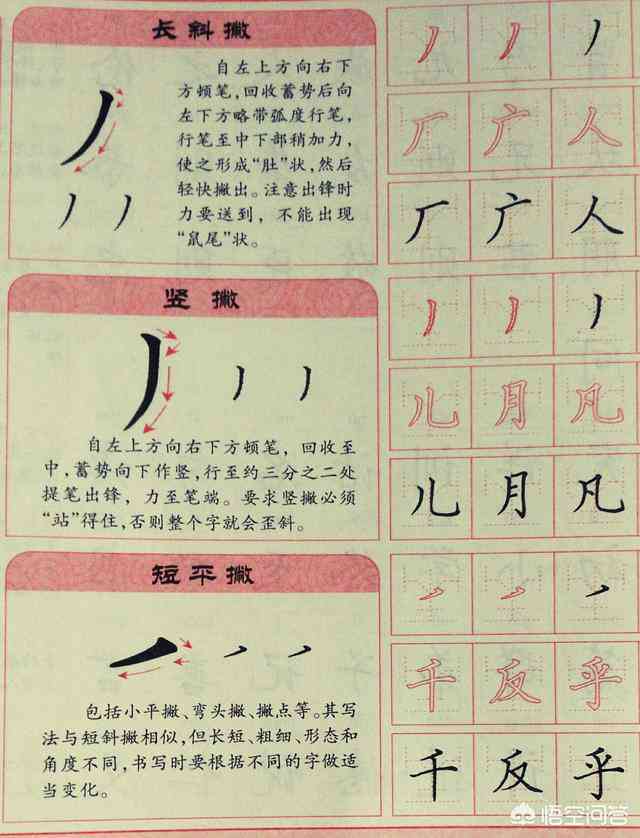 长斜撇
自左上方向右下
方顿笔,回收蓄势后向
左下方略带弧度行笔,
行笔至中下部稍加力,
使之形成“肚”状,然后
轻快撇出。注意出锋时
力要送到,不能出现
“鼠尾”状。
厂 广 人
厂 广 人
竖撇
自左上方向右下方顿笔,回收至
中,蓄势向下作竖,行至约三分之二处
提笔出锋,力至笔端。要求竖撇必须
“站”得住,否则整个字就会歪斜。
儿 月 凡
儿 月 凡
短平撇
包括小平撇、弯头撇、撇点等。其写
法与短斜撇相似,但长短、粗细、形态和
角度不同,书写时要根据不同的字做适
当变化。
千 反 乎
千 反 乎
悟空问答